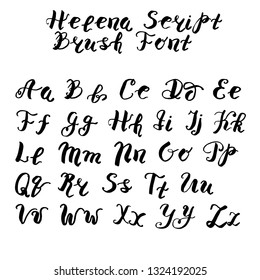 Helena Script
Brush Font
Aa Bb Cc Dd Ee
Ff Gg Hh Ii Jj Kk
Ll Mm Nn Oo Pp
Qq Rr Ss Tt Uu
Vv Ww Xx Yy Zz
www.shutterstock.com · 1324192025